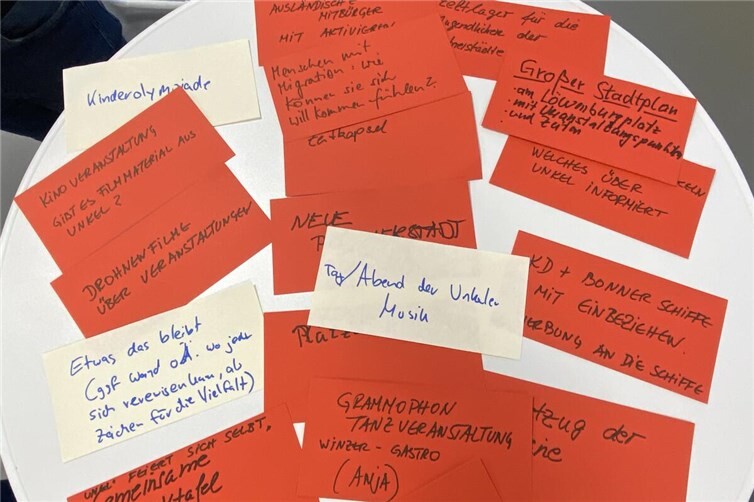 AUSLÄNDISCHE
MITBÜRGER
MIT AKTIVIEREN
Zeltlager für die
Jugendlichen der
Menschen mit
Migration, wie
können sie sich
willkommen fühlen?
Zeitkapsel
Kinderolympiade
Großer Stadtplan
- am Löwenburgplatz
- mit Veranstaltungspunkten
und Zeiten
WELCHES ÜBER
UNKEL INFORMIERT
KINOVERANSTALTUNG
GIBT ES FILMMATERIAL AUS
UNKEL?
DROHNENFILME
ÜBER VERANSTALTUNGEN
NEUE
Tag/Abend der Unkeler
Musik
KD + BONNER SCHIFFE
MIT EINBEZIEHEN.
WERBUNG AN DIE SCHIFFE
Etwas das bleibt
(ggf Wand od. wo jeder
sich verewigen kann, als
Zeichen für die Vielfalt)
GRAMMOPHON
TANZVERANSTALTUNG
WINZER - GASTRO
(ANJA)
der
FEIERT SICH SELBST,